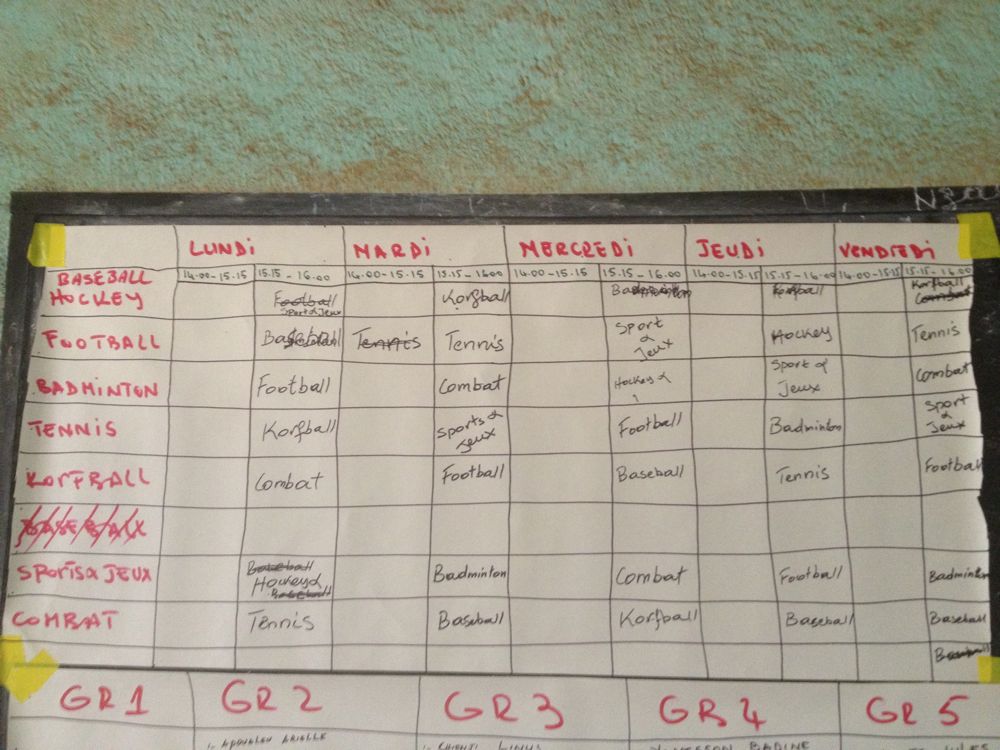 LUNDi MARDi MERCREDi JEUDi VENDREDi
14.00-15.15 15.15-16.00 14.00-15.15 15.15-16.00 14.00-15.15 15.15-16.00 14.00-15.15 15.15-16.00 14.00-15.15 15.15-16.00
BASEBALL
HOCKEY Football Korfball Korfball
Sport & Jeux Combat
FOOTBALL Tennis Tennis Sport & Jeux Hockey Tennis
BADMINTON Football Combat Hockey & Sport & Jeux Combat
TENNIS Korfball Sports & Jeux Football Badminton Sport & Jeux
KORFBALL Combat Football Baseball Tennis Football
BASEBALL
SPORTS & JEUX Baseball Badminton Combat Football Badminton
Hockey &
Baseball
COMBAT Tennis Baseball Korfball Baseball Baseball
GR 1 GR 2 GR 3 GR 4 GR 5